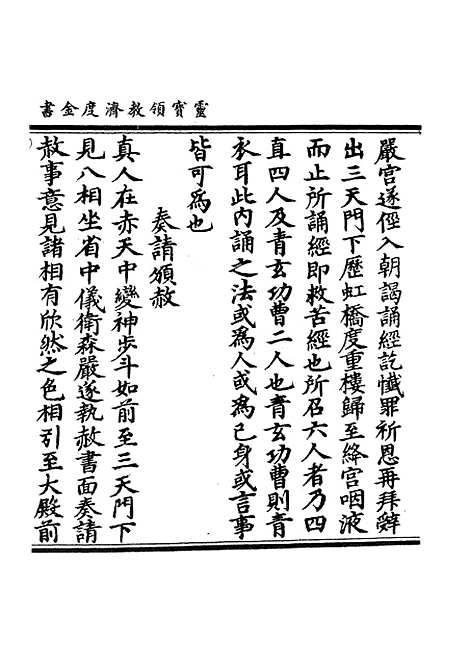 靈寶領教濟度金書
嚴宮遂徑入朝謁誦經訖懺罪祈恩再拜辭
出三天門下歷虹橋度重樓歸至絳宮咽液
而止所誦經即救苦經也所召六人者乃四
直四人及青玄功曹二人也青玄功曹則青
衣耳此內誦之法或為人或為己身或言事
皆可為也
奏請頒赦
真人在赤天中變神步斗如前至三天門下
見八相坐省中儀衛森嚴遂執赦書面奏請
赦事意見諸相有欣然之色相引至大殿前